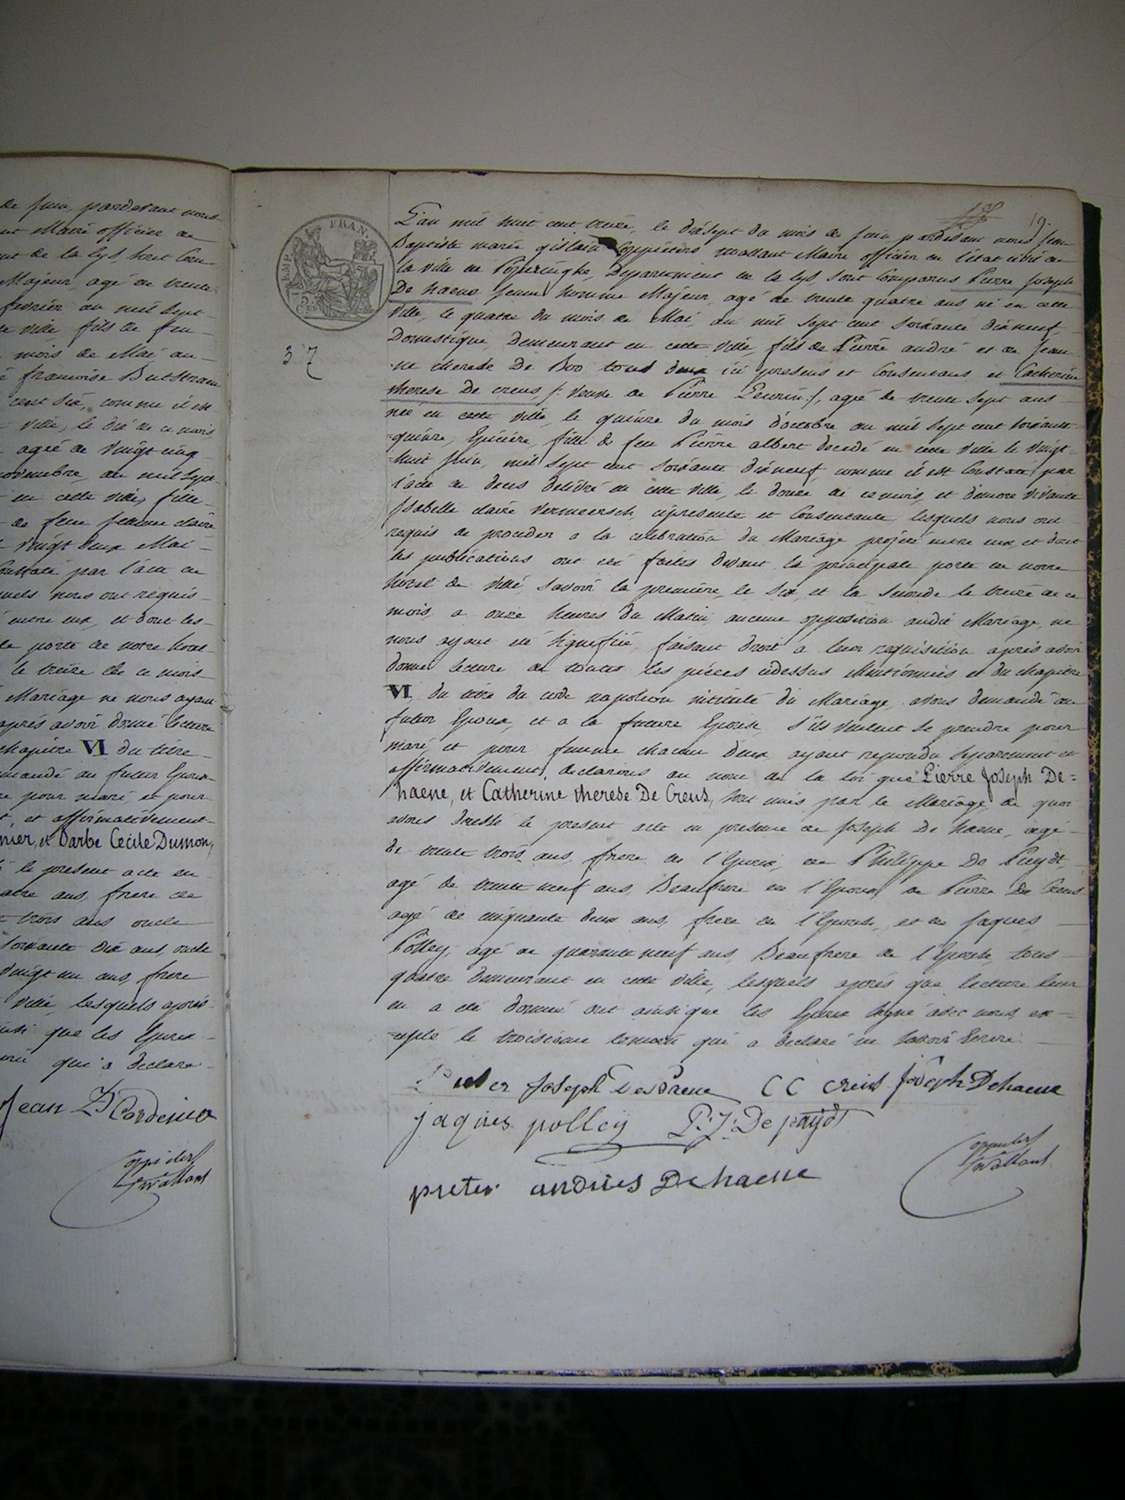 de Juin pardevant nous
Maire officier de
de la Lys sont Com-
Majeur, agé de trente
fevrier an mil sept
ville fils de feu
mois de Mai an
françoise
cent six, comme il est
ville, le dix de ce mois
agée de vingt cinq
novembre, an mil sept
en cette ville, fille
de feue femme claire
vingt deux Mai
constaté par l'acte de
nous ont requis
entre eux, et dont les
porte de notre hotel
le treize de ce mois
Mariage ne nous ayant
après avoir donné lecture
chapitre VI du titre
demandé au futur Epoux
pour mari et pour
et affirmativement
nier, et Barbe Cécile Dumon,
le present acte en
ans, frere de
trois ans oncle
soixante dix ans, oncle
vingt un ans, frere
ville, lesquels après
que les Epoux
qui a declaré
Jean
Wallant
TIMB. FRAN.
19.
37
L'an mil huit cent treize, le dixsept du mois de Juin pardevant nous Jean
Baptiste marie gislain Coppieters Wallant Maire officier de l'état civil de
la ville de Poperinghe, Departement de la Lys sont Comparus Pierre Joseph
De haene jeune homme Majeur, agé de trente quatre ans né en cette
ville, le quatre du mois de Mai, an mil sept cent soixante dixneuf,
Domestique, demeurant en cette ville, fils de Pierre andré et de Jean-
ne therese De Boo tous deux ici presens et Consentans et Catherine
therese De creus /: veuve de Pierre :/, agée de trente sept ans
née en cette ville, le quinze du mois d'octobre an mil sept cent soixante
quinze, Epiciere, fille de feu Pierre albert decedé en cette ville le vingt
huit Juin, mil sept cent soixante dixneuf, comme il est Constaté par
l'acte de deces delivré en cette ville, le douze de ce mois, et d'encore vivante
Isabelle claire Vermeersch, ci presente et Consentante, lesquels nous ont
requis de proceder a la celebration du Mariage projeté entre eux, et dont
les publications ont été faites devant la principale porte de notre
hotel de ville, savoir la premiere, le six, et la seconde le treize de ce
mois, a onze heures du Matin, aucune opposition audit Mariage, ne
nous ayant été signifiée, faisant droit a leur requisition après avoir
donné lecture de toutes les pièces cidessus Mentionnées et du chapitre
VI, du titre du code napoleon intitulé du Mariage, avons demandé au
futur Epoux, et a la future Epouse, s'ils veulent se prendre pour
mari, et pour femme chacun d'eux ayant repondu separement et
affirmativement, declarons au nom de la loi que Pierre Joseph De-
haene, et Catherine therese De Creus, sont unis par le Mariage, de quoi
avons dressé le present acte en presence de Joseph De haene, agé
de trente trois ans, frere de l'Epoux, de Philippe De Puydt,
agé de trente neuf ans, Beaufrere de l'Epoux, de Pierre De Creus
agé de cinquante deux ans, frere de l'Epouse, et de Jaques
Polley, agé de quarante neuf ans, Beaufrere de l'Epouse tous
quatre demeurant en cette ville, lesquels après que lecture leur
en a été donnée ont ainsi que les Epoux signé avec nous, ex-
cepté le troisieme temoin qui a declaré ne savoir Ecrire.
Pieter Joseph Dehaene C C Creus Joseph Dehaene
jaques polley P: J: De puydt
pieter andries Dehaene
Coppieters
Wallant